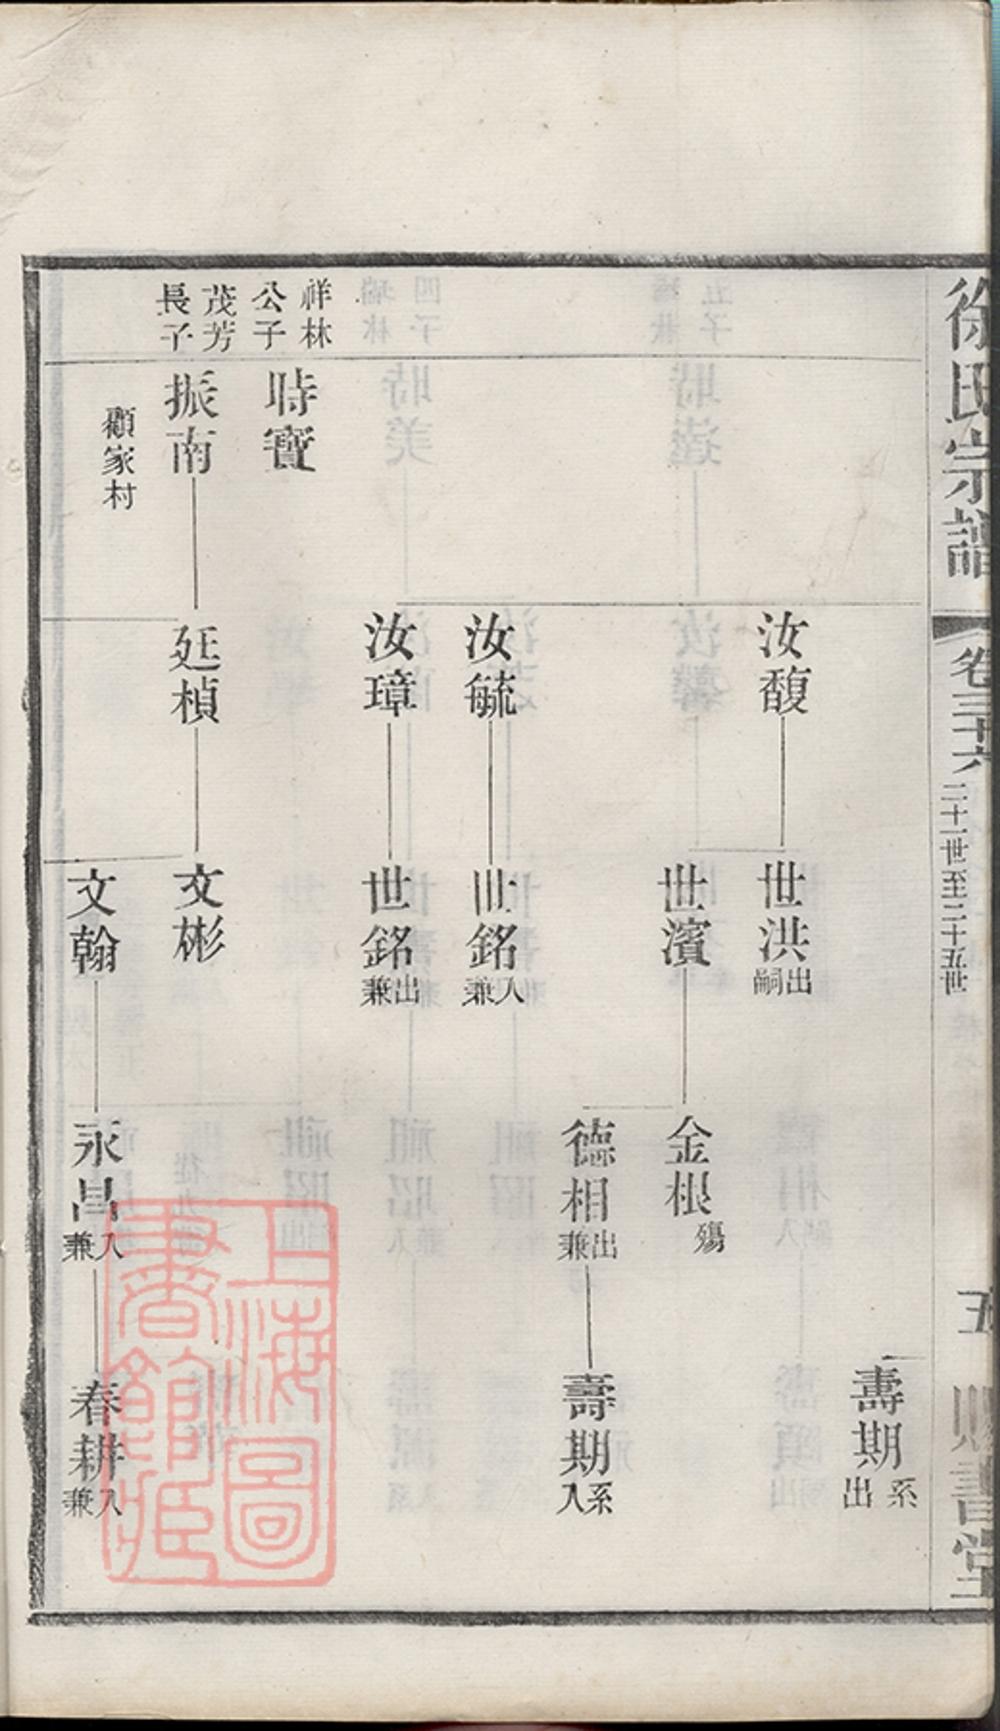 徐氏宗譜
卷三十六
二十一世至二十五世
五
賜書堂
祥林
公子
茂芳
長子
時寶
振南
顧家村
汝馥
汝毓
汝璋
廷楨
世洪
出嗣
世濱
世銘
入兼
世銘
出兼
文彬
文翰
金根
殤
德相
出兼
永昌
入兼
壽期
系出
壽期
系入
春耕
入兼
上海圖書館藏